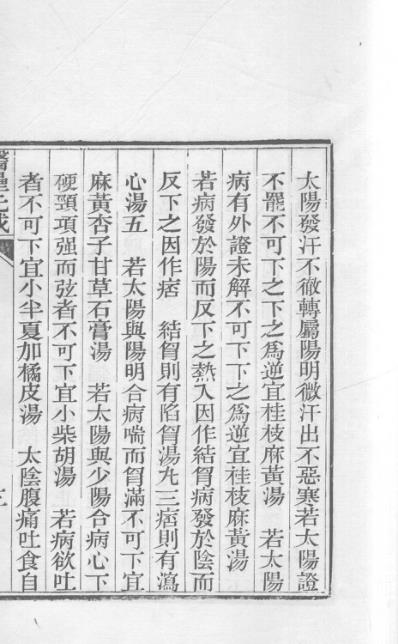 太陽發汗不徹轉屬陽明微汗出不惡寒若太陽證
不罷不可下之下之爲逆宜桂枝麻黃湯　若太陽
病有外證未解不可下下之爲逆宜桂枝麻黃湯
若病發於陽而反下之熱入因作結胷病發於陰而
反下之因作痞　結胷則有陷胷湯九三痞則有瀉
心湯五　若太陽與陽明合病喘而胷滿不可下宜
麻黃杏子甘草石膏湯　若太陽與少陽合病心下
硬頸項强而弦者不可下宜小柴胡湯　若病欲吐
者不可下宜小半夏加橘皮湯　太陰腹痛吐食自